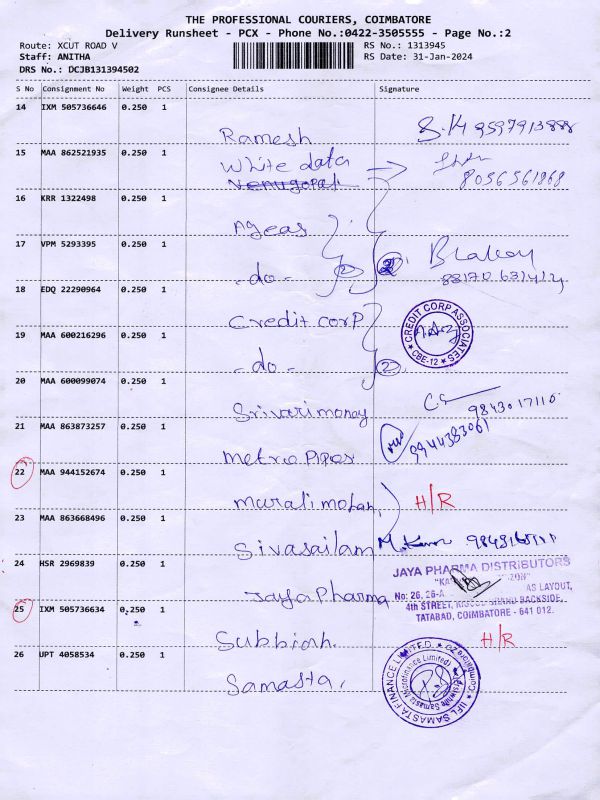 THE PROFESSIONAL COURIERS, COIMBATORE
Delivery Runsheet - PCX - Phone No.:0422-3505555 - Page No.:2
Route: XCUT ROAD V
RS No.: 1313945
Staff: ANITHA
RS Date: 31-Jan-2024
DRS No.: DCJB131394502
S No Consignment No Weight PCS Consignee Details Signature
14 IXM 505736646 0.250 1
Ramesh
15 MAA 862521935 0.250 1
White data
8056561868
16 KRR 1322498 0.250 1
Ageas
17 VPM 5293395 0.250 1
- do - 2
18 EDQ 22290964 0.250 1
Credit corp
CREDIT CORP ASSOCIATES
CBE-12
19 MAA 600216296 0.250 1
- do - 2
20 MAA 600099074 0.250 1
Srivari money
21 MAA 863873257 0.250 1
9944383061
metro Pipes
22 MAA 944152674 0.250 1
muralimohan H/R
23 MAA 863668496 0.250 1
Sivasailam
24 HSR 2969839 0.250 1
JAYA PHARMA DISTRIBUTORS
Jaya Pharma
No: 26, 26-A AS LAYOUT,
4th STREET, BACKSIDE,
TATABAD, COIMBATORE - 641 012.
25 IXM 505736634 0.250 1
Subbiah. H/R
26 UPT 4058534 0.250 1
Samasta.
IIFL SAMASTA FINANCE LIMITED